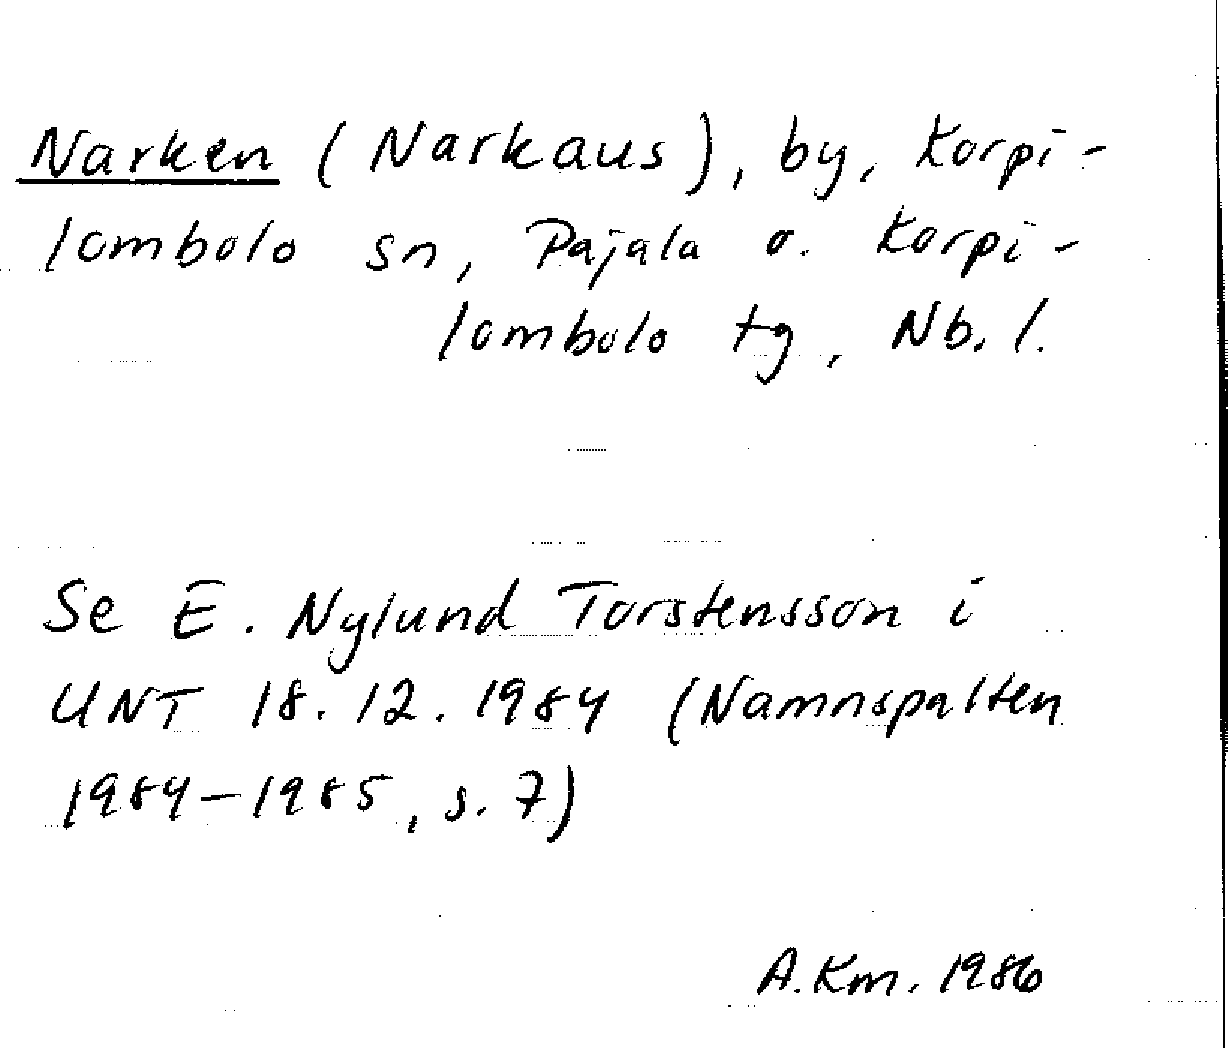 Narken (Narkaus), by, Korpi-
lombolo sn, Pajala o. Korpi-
lombolo tg, Nb. l.
Se E. Nylund Torstensson i
UNT 18.12.1984 (Namnspalten
1984–1985, s. 7)
A.Km. 1986